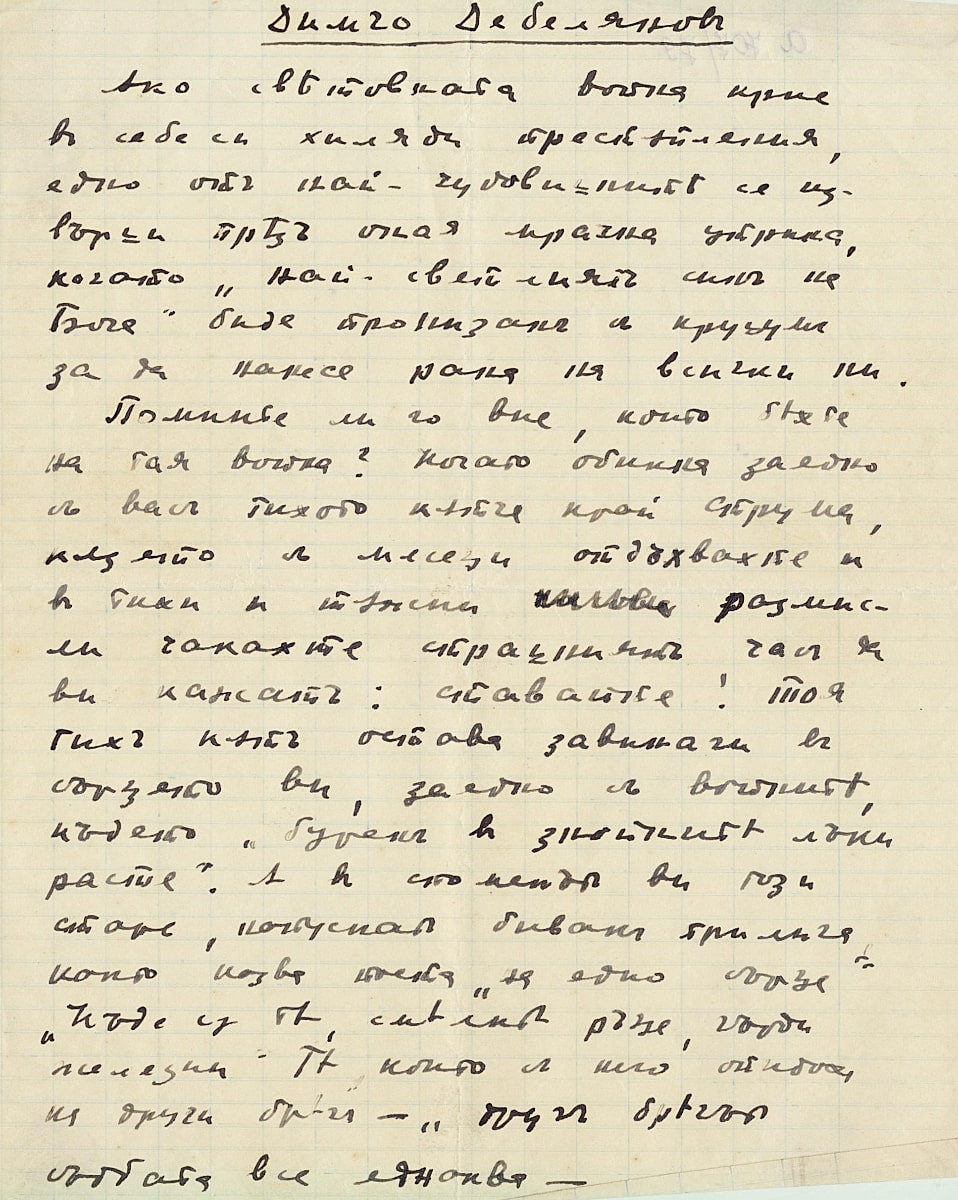 Димчо Дебеляновъ
Ако свѣтовната война крие
въ себе си хиляди престѫпления,
едно отъ най-чудовищнитѣ се из-
върши прѣзъ оная мрачна утрина,
когато „най-светлиятъ синъ на
Бога" биде пронизанъ съ куршумъ
за да нанесе рана на всички ни.
Помните ли го вие, които бѣхте
на тая война? Когато обикна заедно
съ васъ тихото кѫтче край Струма,
кѫдето съ месеци отдъхвахте и
въ тихи и тѫжни размис-
ли чакахте страшниятъ часъ да
ви кажатъ: ставайте! Тоя
тихъ кѫтъ остава завинаги въ
сърцето ви, заедно съ войнитѣ,
кѫдето „буренъ въ знойнитѣ лъки
расте". А въ спомена ви този
старъ, напуснатъ бивакъ прилича
който казва поета „на едно сърце"
„Къде су тѣ, смѣлитѣ ръце, гърди
железни" Тѣ които съ него отидоха
на други брѣгъ — „другъ брѣгъ
съдбата все еднаква —